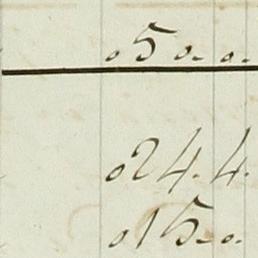 .5 o. o.
.24. 4.
.15. o.